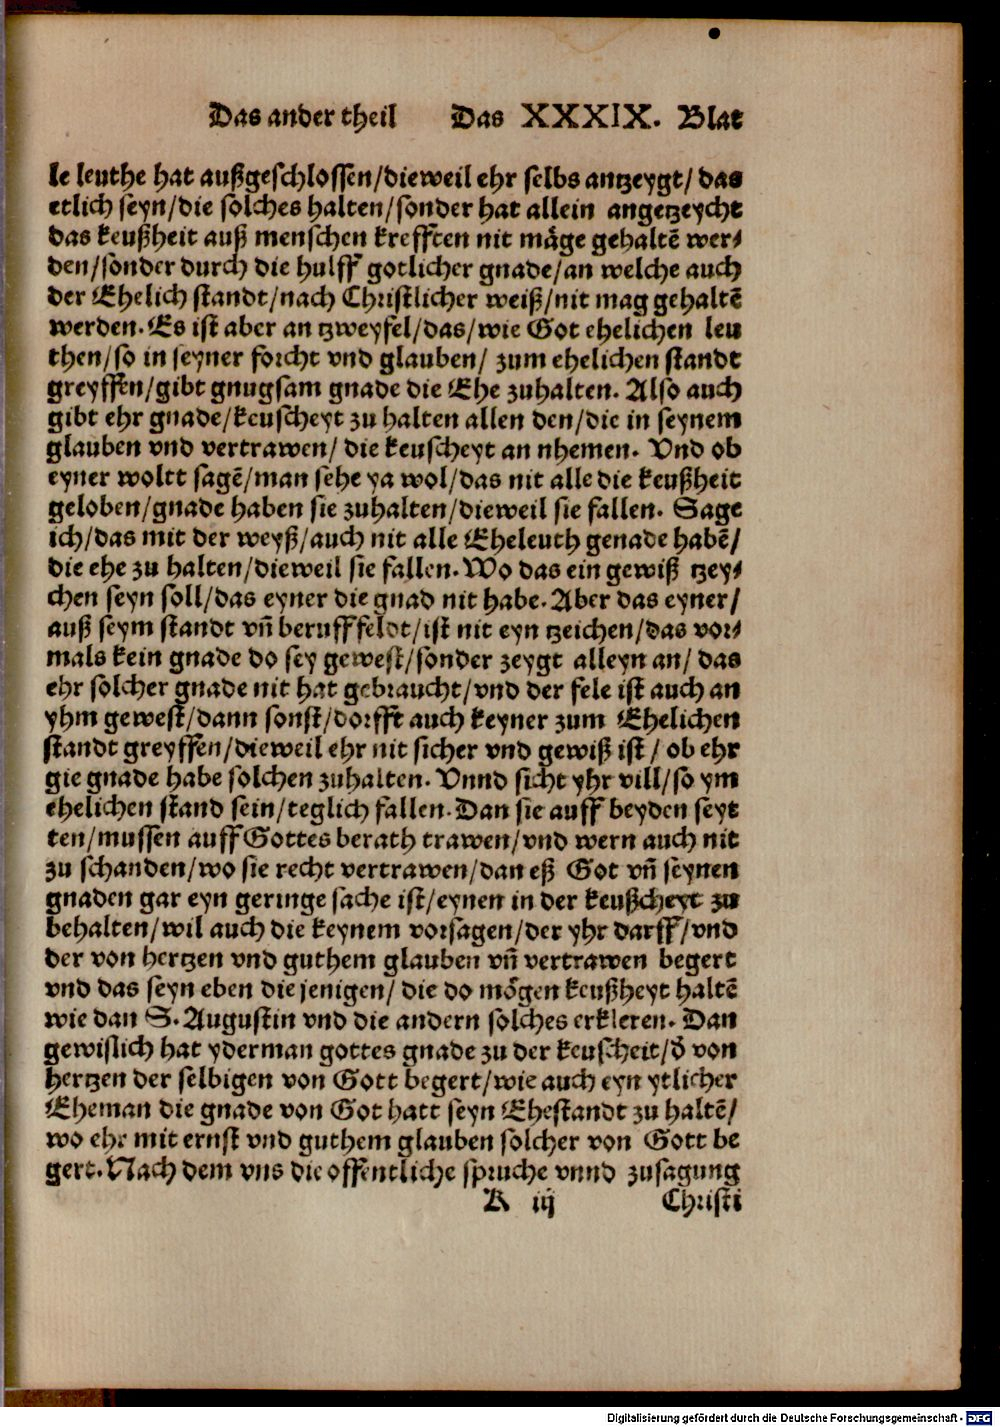 Das ander theil Das XXXIX. Blat
le leuthe hat außgeschlossen/dieweil ehr selbs antzeygt/ das
etlich seyn/die solches halten/sonder hat allein angetzeycht
das keußheit auß menschen krefften nit mäge gehaltē wer⸗
den/sonder durch die hulff gotlicher gnade/an welche auch
der Ehelich standt/nach Christlicher weiß/nit mag gehaltē
werden. Es ist aber an tzweyfel/das/wie Got ehelichen leu
then/so in seyner forcht vnd glauben/ zum ehelichen standt
greyffen/gibt gnugsam gnade die Ehe zuhalten. Also auch
gibt ehr gnade/keuscheyt zu halten allen den/die in seynem
glauben vnd vertrawen/ die keuscheyt an nhemen. Vnd ob
eyner woltt sagē/man sehe ya wol/das nit alle die keußheit
geloben/gnade haben sie zuhalten/dieweil sie fallen. Sage
ich/das mit der weyß/auch nit alle Eheleuth genade habē/
die ehe zu halten/dieweil sie fallen. Wo das ein gewiß tzey⸗
chen seyn soll/das eyner die gnad nit habe. Aber das eyner/
auß seym standt vn̄ beruff feldt/ist nit eyn tzeichen/das vor⸗
mals kein gnade do sey gewest/sonder zeygt alleyn an/ das
ehr solcher gnade nit hat gebraucht/vnd der fele ist auch an
yhm gewest/dann sonst/dorfft auch keyner zum Ehelichen
standt greyffen/dieweil ehr nit sicher vnd gewiß ist/ ob ehr
gie gnade habe solchen zuhalten. Vnnd sicht yhr vill/so ym
ehelichen stand sein/teglich fallen. Dan sie auff beyden seyt
ten/mussen auff Gottes berath trawen/vnd wern auch nit
zu schanden/wo sie recht vertrawen/dan eß Got vn̄ seynen
gnaden gar eyn geringe sache ist/eynen in der keußcheyt zu
behalten/wil auch die keynem vorsagen/der yhr darff/vnd
der von hertzen vnd guthem glauben vn̄ vertrawen begert
vnd das seyn eben die jenigen/ die do mögen keußheyt haltē
wie dan S. Augustin vnd die andern solches erkleren. Dan
gewislich hat yderman gottes gnade zu der keuscheit/d̄ von
hertzen der selbigen von Gott begert/wie auch eyn ytlicher
Eheman die gnade von Got hatt seyn Ehestandt zu haltē/
wo ehr mit ernst vnd guthem glauben solcher von Gott be
gert. Nach dem vns die offentliche spruche vnnd zusagung
K iij Christi
Digitalisierung gefördert durch die Deutsche Forschungsgemeinschaft - DFG